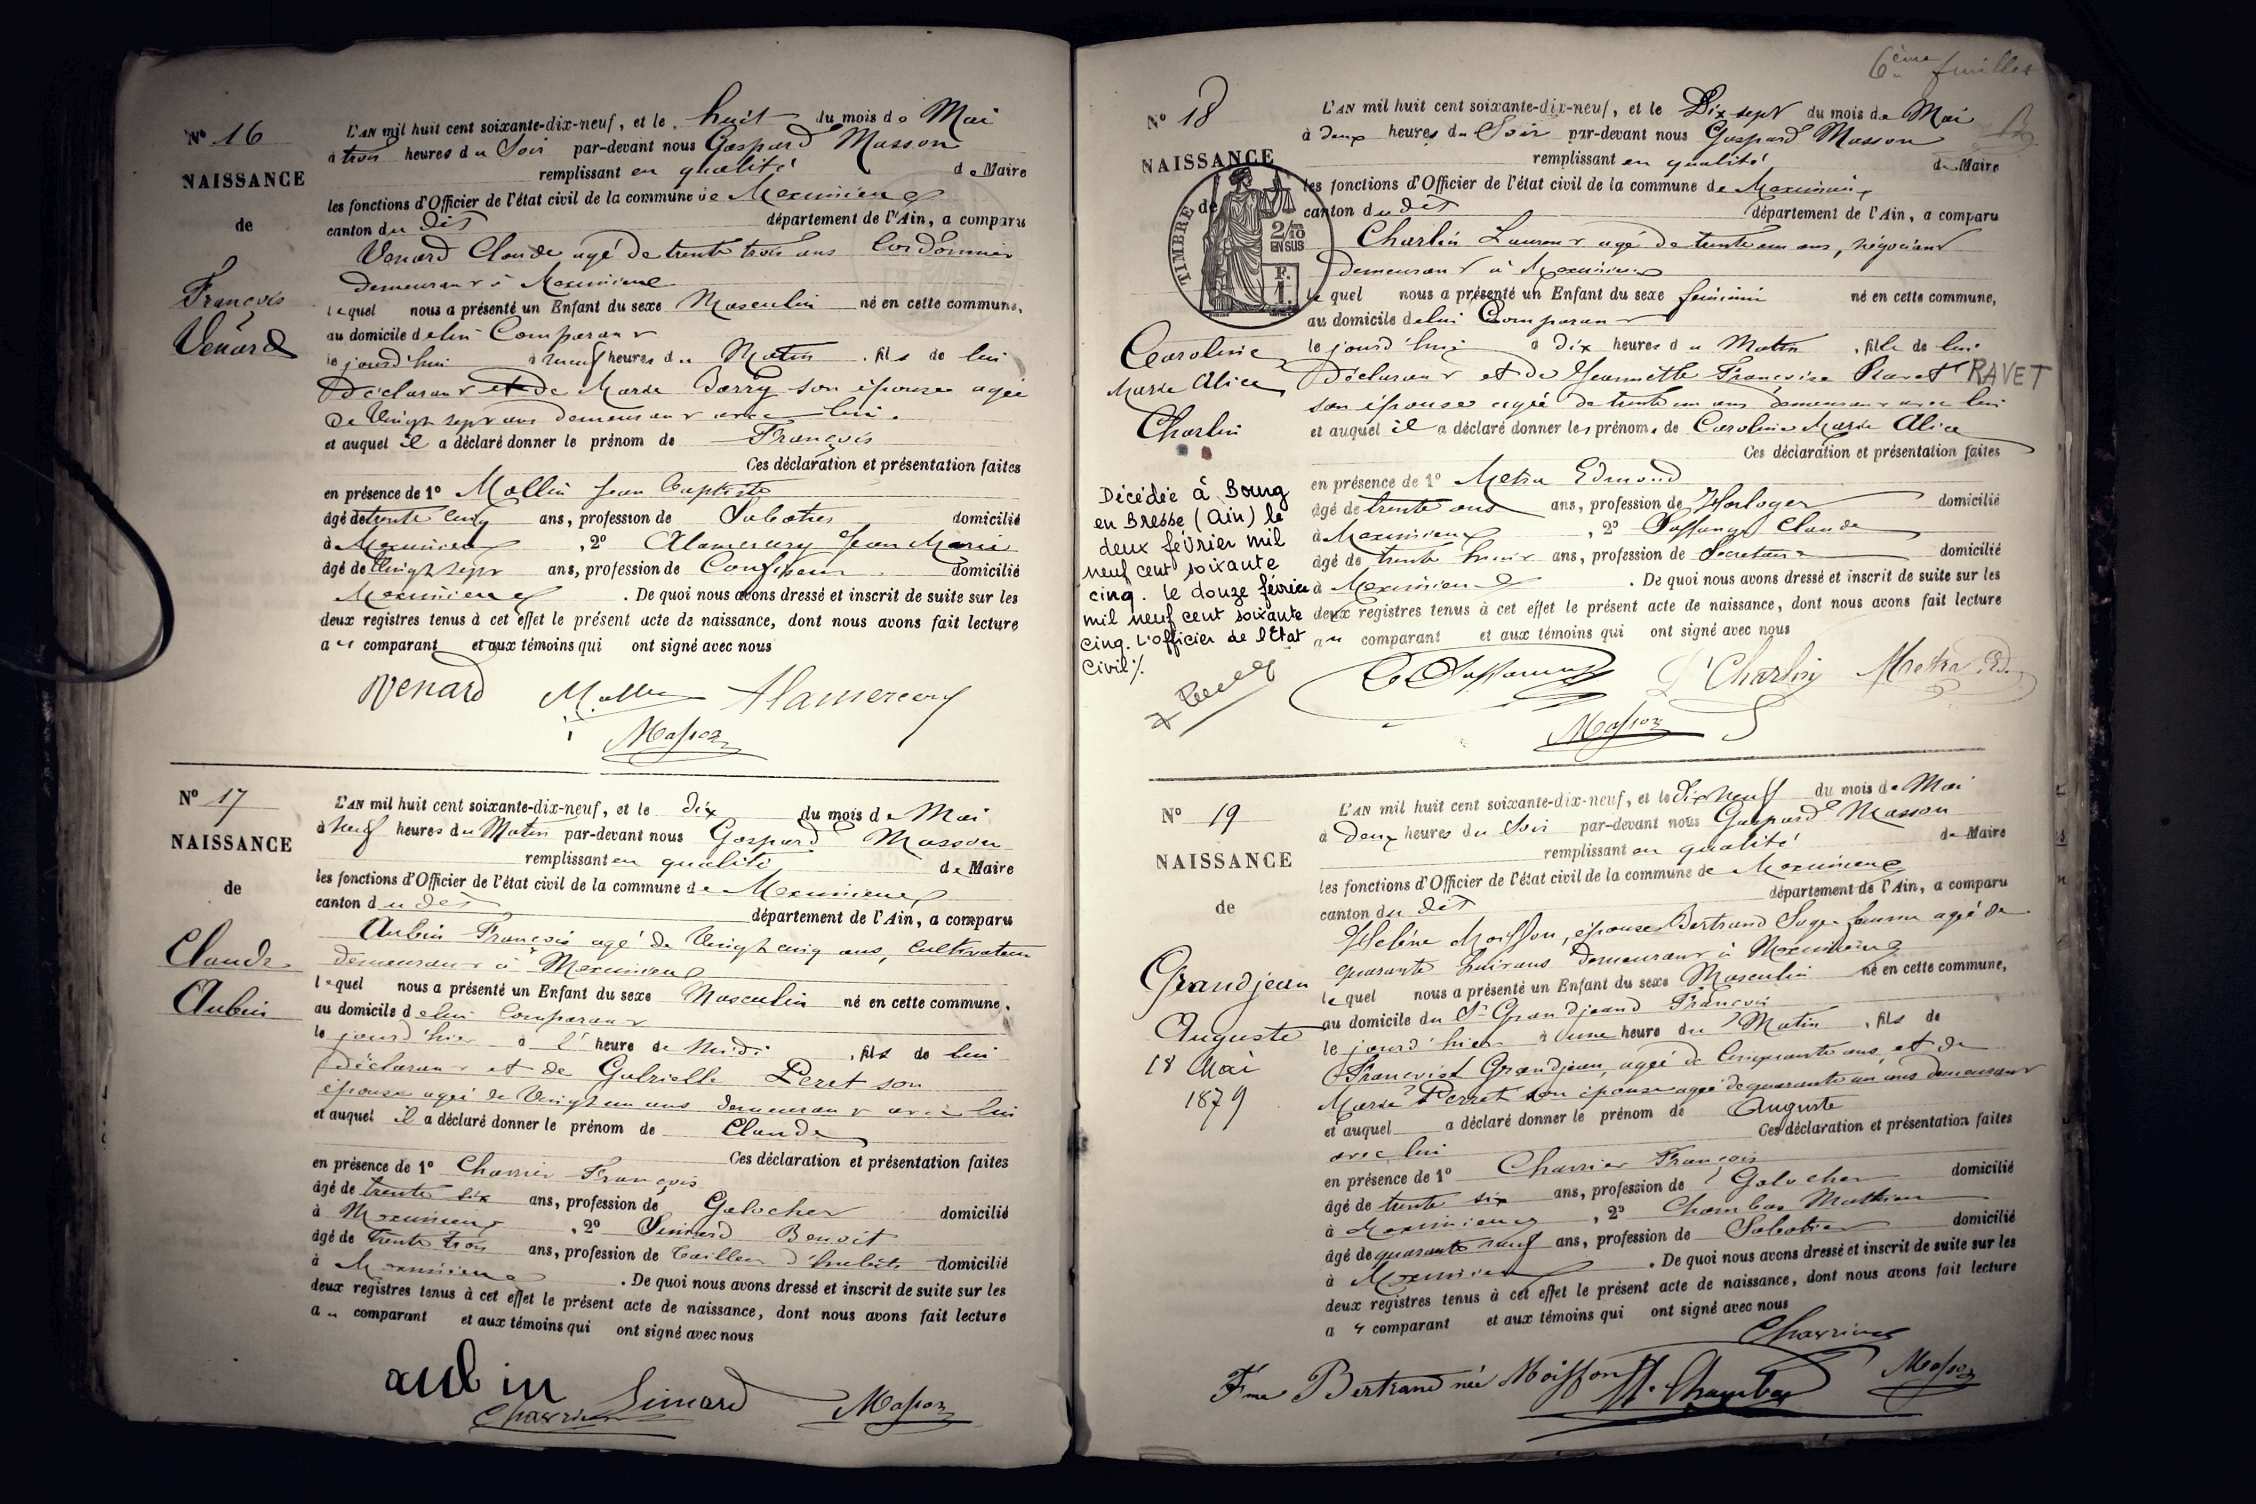 Nº 16
NAISSANCE
de
François
Vénard
L'AN mil huit cent soixante-dix-neuf, et le huit du mois de Mai
à trois heures du Soir par-devant nous Gaspard Masson
remplissant en qualité de Maire
les fonctions d'Officier de l'état civil de la commune de Meximieux
canton du dit département de l'Ain, a comparu
Venard Claude agé de trente trois ans Cordonnier
demeurant à Meximieux
lequel nous a présenté un Enfant du sexe Masculin né en cette commune,
au domicile de lui Comparant
le jourd'hui à neuf heures du Matin, fils de lui
Déclarant et de Marie Borry son épouse agée
de Vingt sept ans demeurant avec lui.
et auquel il a déclaré donner le prénom de François
Ces déclaration et présentation faites
en présence de 1º Mollin Jean Baptiste
âgé de trente cinq ans, profession de Sabotier domicilié
à Meximieux, 2º Alamercery Jean Marie
âgé de Vingt sept ans, profession de Confiseur domicilié
Meximieux. De quoi nous avons dressé et inscrit de suite sur les
deux registres tenus à cet effet le présent acte de naissance, dont nous avons fait lecture
au comparant et aux témoins qui ont signé avec nous
Venard Mollin Alamercery
Masson
Nº 17
NAISSANCE
de
Claude
Aubin
L'AN mil huit cent soixante-dix-neuf, et le dix du mois de Mai
à neuf heures du Matin par-devant nous Gaspard Masson
remplissant en qualité de Maire
les fonctions d'Officier de l'état civil de la commune de Meximieux
canton du dit département de l'Ain, a comparu
Aubin François agé de Vingt cinq ans, cultivateur
demeurant à Meximieux
lequel nous a présenté un Enfant du sexe Masculin né en cette commune,
au domicile de lui Comparant
le jourd'hier à l'heure de Midi, fils de lui
Déclarant et de Gabrielle Peret son
épouse agée de Vingt un ans demeurant avec lui
et auquel il a déclaré donner le prénom de Claude
Ces déclaration et présentation faites
en présence de 1º Charrier François
âgé de trente six ans, profession de Galocher domicilié
à Meximieux, 2º Simard Benoit
âgé de trente trois ans, profession de tailleur d'habits domicilié
à Meximieux. De quoi nous avons dressé et inscrit de suite sur les
deux registres tenus à cet effet le présent acte de naissance, dont nous avons fait lecture
au comparant et aux témoins qui ont signé avec nous
aubin Simard Masson
Charrier
6ème feuillet
Nº 18
NAISSANCE
de
TIMBRE
2/10
EN SUS
F.
1.
Caroline
Marie Alice
Charlin
Décédée à Bourg
en Bresse (Ain) le
deux février mil
neuf cent soixante
cinq. le douze février
mil neuf cent soixante
cinq. L'officier de l'Etat
Civil ./.
L'AN mil huit cent soixante-dix-neuf, et le Dix sept du mois de Mai
à deux heures du Soir par-devant nous Gaspard Masson
remplissant en qualité de Maire
les fonctions d'Officier de l'état civil de la commune de Meximieux
canton du dit département de l'Ain, a comparu
Charlin Laurent agé de trente un ans, négociant
demeurant à Meximieux
lequel nous a présenté un Enfant du sexe féminin né en cette commune,
au domicile de lui Comparant
le jourd'hui à dix heures du Matin, fille de lui
Déclarant et de Jeannette Françoise Ravet RAVET
son épouse agée de trente un ans demeurant avec lui
et auquel il a déclaré donner les prénoms de Caroline Marie Alice
Ces déclaration et présentation faites
en présence de 1º Metra Edmond
âgé de trente ans ans, profession de Horloger domicilié
à Meximieux, 2º Claude
âgé de trente huit ans, profession de Secretaire domicilié
à Meximieux. De quoi nous avons dressé et inscrit de suite sur les
deux registres tenus à cet effet le présent acte de naissance, dont nous avons fait lecture
au comparant et aux témoins qui ont signé avec nous
Charlin Metra Ed.
Masson
Nº 19
NAISSANCE
de
Grandjean
Auguste
18 Mai
1879
L'AN mil huit cent soixante-dix-neuf, et le dix neuf du mois de Mai
à deux heures du Soir par-devant nous Gaspard Masson
remplissant en qualité de Maire
les fonctions d'Officier de l'état civil de la commune de Meximieux
canton du dit département de l'Ain, a comparu
Hélène Moisson, épouse Bertrand Sage femme agée de
quarante huit ans demeurant à Meximieux
lequel nous a présenté un Enfant du sexe Masculin né en cette commune,
au domicile du Sr Grandjeand François
le jourd'hier à une heure du Matin, fils de
François Grandjean, agé de Cinquante ans, et de
Marie Perret son épouse agée de quarante un ans demeurant
et auquel a déclaré donner le prénom de Auguste
Ces déclaration et présentation faites
avec lui
en présence de 1º Charrier François
âgé de trente six ans, profession de Galocher domicilié
à Meximieux, 2º Chambas Mathieu
âgé de quarante neuf ans, profession de Sabotier domicilié
à Meximieux. De quoi nous avons dressé et inscrit de suite sur les
deux registres tenus à cet effet le présent acte de naissance, dont nous avons fait lecture
au comparant et aux témoins qui ont signé avec nous
Charrier
Fme Bertrand née Moisson M. Chambas Masson